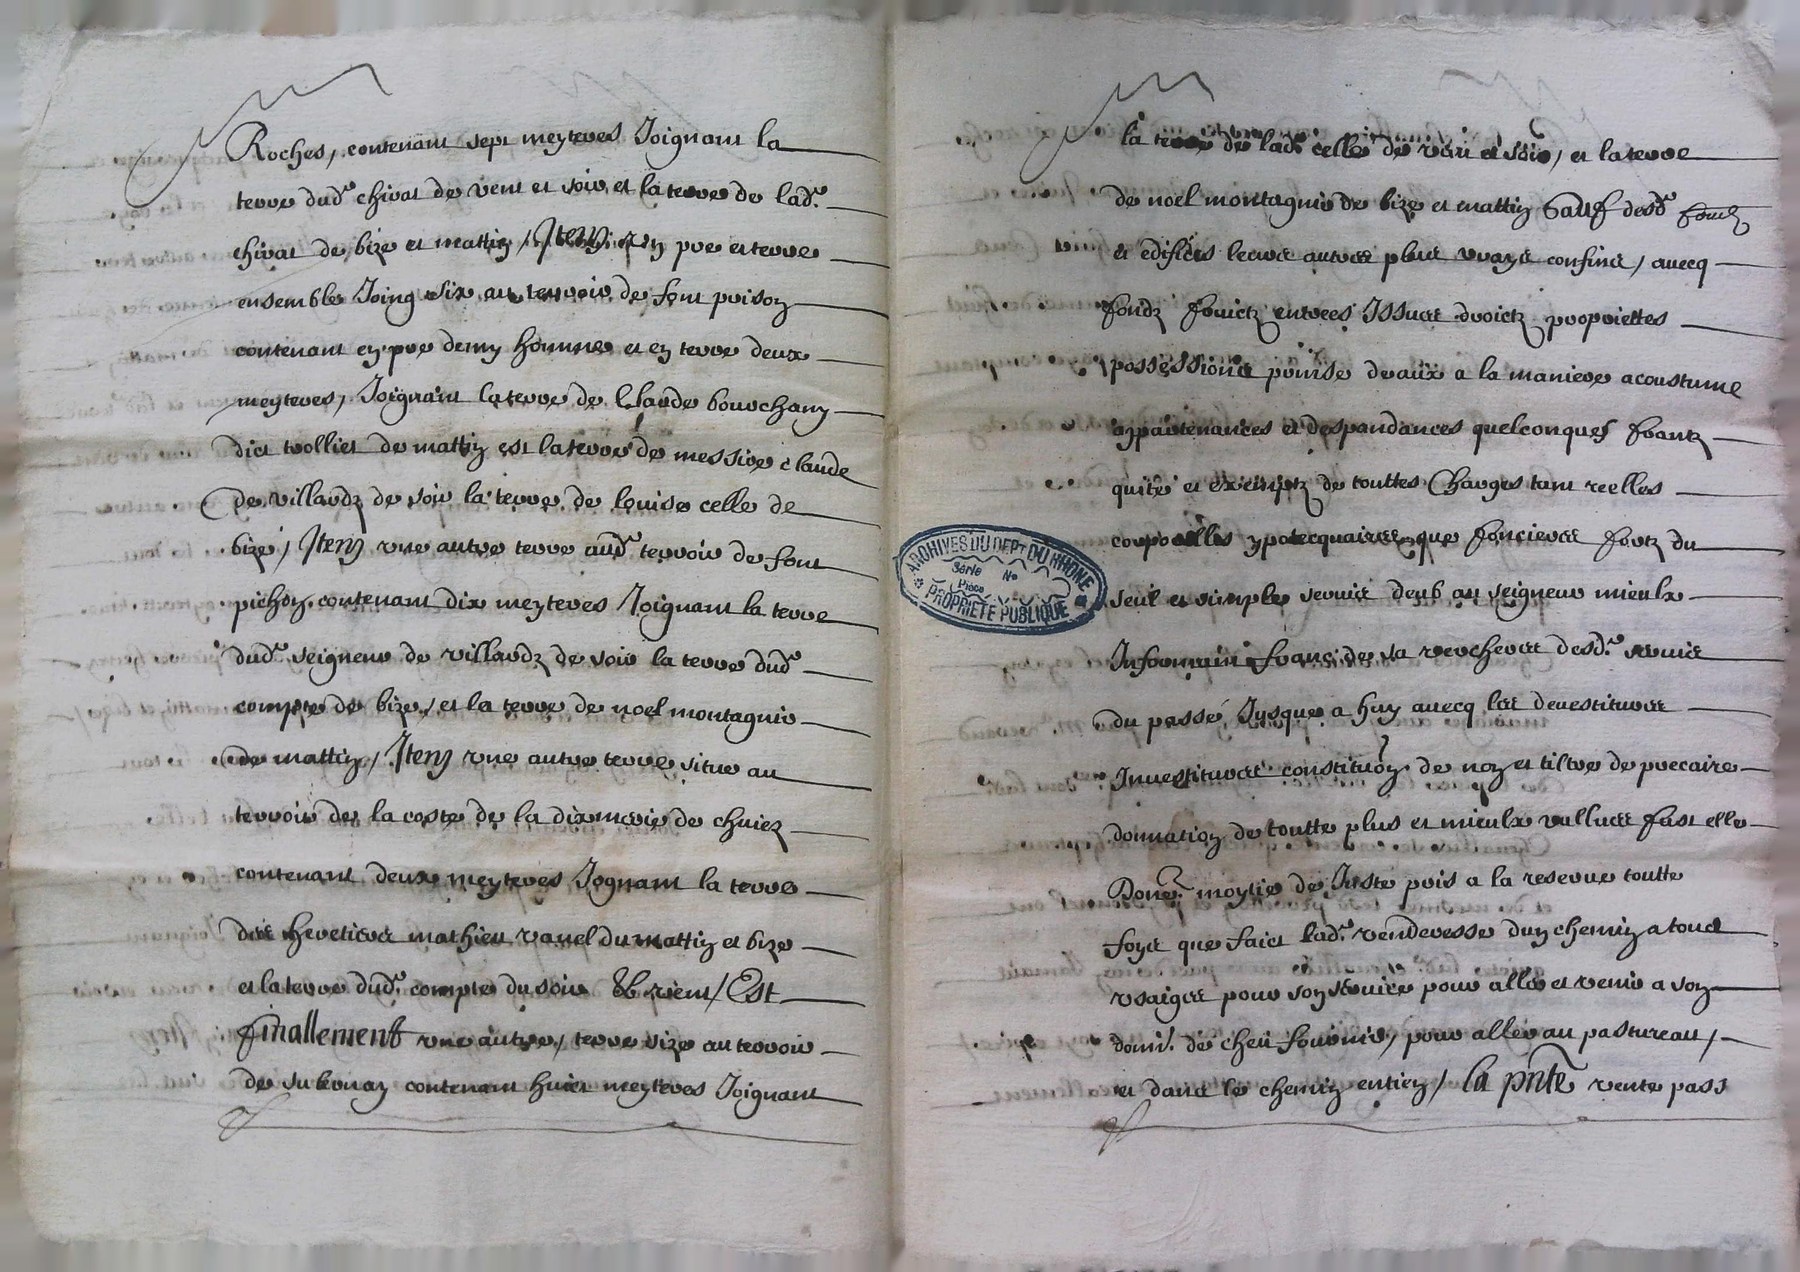 Roches, contenant sept meyteres Joignant la
terre dud. chivat de vent et soir et la terre de lad.
chivat de bize et mattin, Item un pre et terre
ensemble Joing size au terroir de font poison
contenant en pre demy homme et en terre deux
meyteres, Joignant la terre de Claude bouchany
dict trolliet de mattin est la terre de messire claude
de villardz de soir la terre de louise celle de
bize, Item une autre terre aud. terroir de font
pichon contenant dix meyteres Joignant la terre
dud. seigneur de villardz de soir la terre dud.
compte de bize, et la terre de noel montagnie
de mattin, Item une autre terre situe au
terroir de la coste de la dixmerie de chuiez
contenant deux meyteres Jognant la terre
des heretieres mathieu vanel du mattin et bize
et la terre dud. compte du soir & vent, Est
finallement une autre, terre size au terroir
de contenant huict meyteres Joignant
la terre de lad. celle de et soir, et la terre
de noel montagnie de bize et mattin Sauf desd.
et edifices leurs autres plus vrays confins, avecq
fondz fruictz entrees Issues droictz propriettes
possessions prinse deaux a la maniere acoustume
appartenances et despandances quelconques frantz
quite et exemptz de touttes Charges tant reelles
corporelles ypotecquaires que foncieres fortz du
seul et simple servis deub au seigneur mieulx
Informain franc de sa rercheres desd. servis
du passé Jusque a huy avecq les devestitures
Investitures constituon de non et tiltre de precaire
donnation de toutte plus et mieulx vallues fast elle
moytie de Juste pris a la reserve toutte
foys que faict lad. venderesse dun chemin a tous
usaiges pour son servire pour aller et venir a son
domi. de cheu fournir, pour aller au pastureau,
et dans le chemin entien, la pnte vente pass
ARCHIVES DU DEPT DU RHONE
Série No
Pièce
PROPRIETE PUBLIQUE